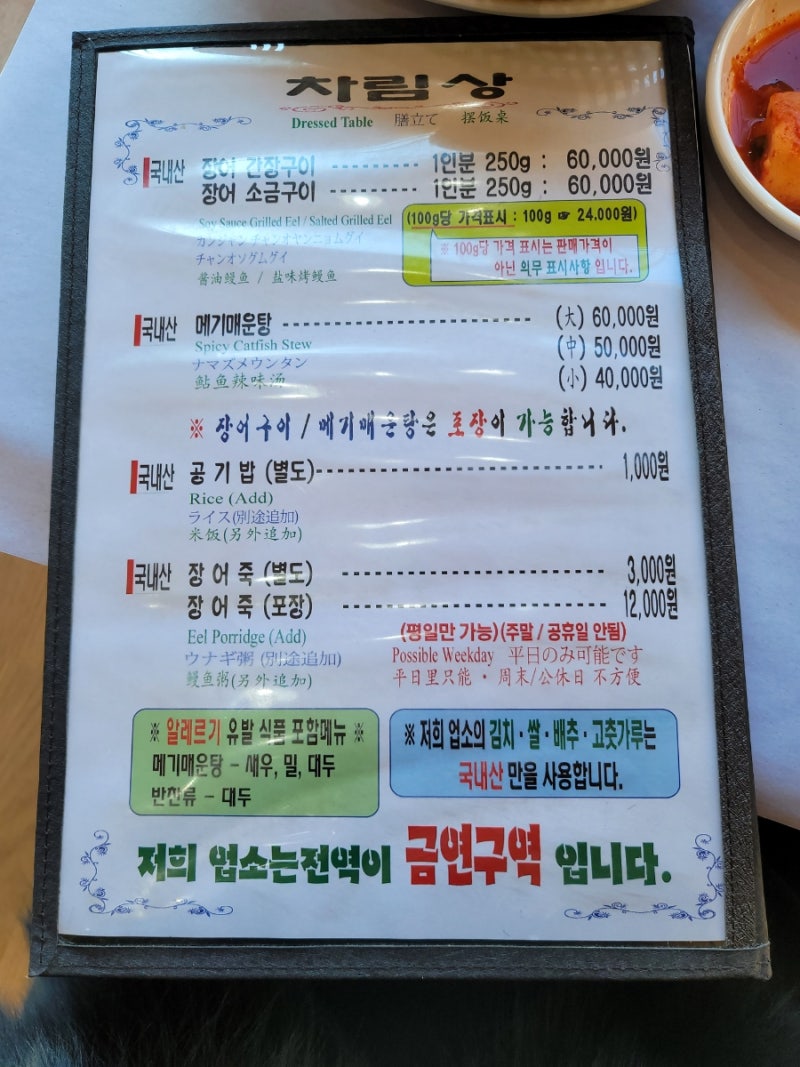 차림상
Dressed Table 膳立て 摆饭桌
국내산 장어 간장구이 1인분 250g : 60,000원
장어 소금구이 1인분 250g : 60,000원
Soy Sauce Grilled Eel / Salted Grilled Eel
カンジャン チャンオヤンニョムグイ
チャンオソグムグイ
酱油鳗鱼 / 盐味烤鳗鱼
(100g당 가격표시 : 100g ☞ 24.000원)
※ 100g당 가격 표시는 판매가격이
아닌 의무 표시사항 입니다.
국내산 메기매운탕 (大) 60,000원
Spicy Catfish Stew (中) 50,000원
ナマズメウンタン
鲇鱼辣味汤 (小) 40,000원
※ 장어구이 / 메기매운탕은 포장이 가능합니다.
국내산 공기밥 (별도) 1,000원
Rice (Add)
ライス(別途追加)
米饭(另外追加)
국내산 장어죽 (별도) 3,000원
장어죽 (포장) 12,000원
Eel Porridge (Add)
ウナギ粥 (別途追加)
鳗鱼粥(另外追加)
(평일만 가능)(주말 / 공휴일 안됨)
Possible Weekday 平日のみ可能です
平日里只能 · 周末/公休日 不方便
※ 알레르기 유발 식품 포함메뉴 ※
메기매운탕 - 새우, 밀, 대두
반찬류 - 대두
※ 저희 업소의 김치 · 쌀 · 배추 · 고춧가루는
국내산 만을 사용합니다.
저희 업소는전역이 금연구역 입니다.